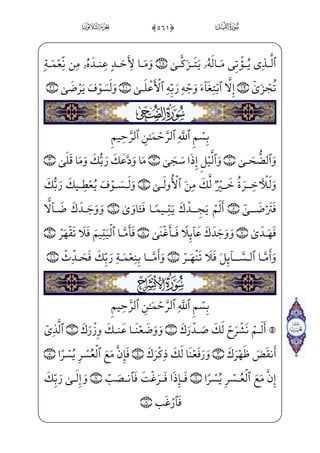 سُورَةُ اللَّيْلِ ﴿٥٦١﴾ الجُزْءُ الثَّلَاثُونَ
ٱلَّذِى يُؤْتِى مَالَهُۥ يَتَزَكَّىٰ ۝١٨ وَمَا لِأَحَدٍ عِندَهُۥ مِن نِّعْمَةٍ
تُجْزَىٰٓ ۝١٩ إِلَّا ٱبْتِغَآءَ وَجْهِ رَبِّهِ ٱلْأَعْلَىٰ ۝٢٠ وَلَسَوْفَ يَرْضَىٰ ۝٢١
سُورَةُ الضُّحَىٰ
بِسْمِ ٱللَّهِ ٱلرَّحْمَٰنِ ٱلرَّحِيمِ
وَٱلضُّحَىٰ ۝١ وَٱلَّيْلِ إِذَا سَجَىٰ ۝٢ مَا وَدَّعَكَ رَبُّكَ وَمَا قَلَىٰ ۝٣
وَلَلْءَاخِرَةُ خَيْرٌ لَّكَ مِنَ ٱلْأُولَىٰ ۝٤ وَلَسَوْفَ يُعْطِيكَ رَبُّكَ
فَتَرْضَىٰٓ ۝٥ أَلَمْ يَجِدْكَ يَتِيمًا فَـَٔاوَىٰ ۝٦ وَوَجَدَكَ ضَآلًّا
فَهَدَىٰ ۝٧ وَوَجَدَكَ عَآئِلًا فَأَغْنَىٰ ۝٨ فَأَمَّا ٱلْيَتِيمَ فَلَا تَقْهَرْ ۝٩
وَأَمَّا ٱلسَّآئِلَ فَلَا تَنْهَرْ ۝١٠ وَأَمَّا بِنِعْمَةِ رَبِّكَ فَحَدِّثْ ۝١١
سُورَةُ الِانشِرَاحِ
بِسْمِ ٱللَّهِ ٱلرَّحْمَٰنِ ٱلرَّحِيمِ
۞ أَلَمْ نَشْرَحْ لَكَ صَدْرَكَ ۝١ وَوَضَعْنَا عَنكَ وِزْرَكَ ۝٢ ٱلَّذِىٓ
أَنقَضَ ظَهْرَكَ ۝٣ وَرَفَعْنَا لَكَ ذِكْرَكَ ۝٤ فَإِنَّ مَعَ ٱلْعُسْرِ يُسْرًا ۝٥
إِنَّ مَعَ ٱلْعُسْرِ يُسْرًا ۝٦ فَإِذَا فَرَغْتَ فَٱنصَبْ ۝٧ وَإِلَىٰ رَبِّكَ
فَٱرْغَب ۝٨